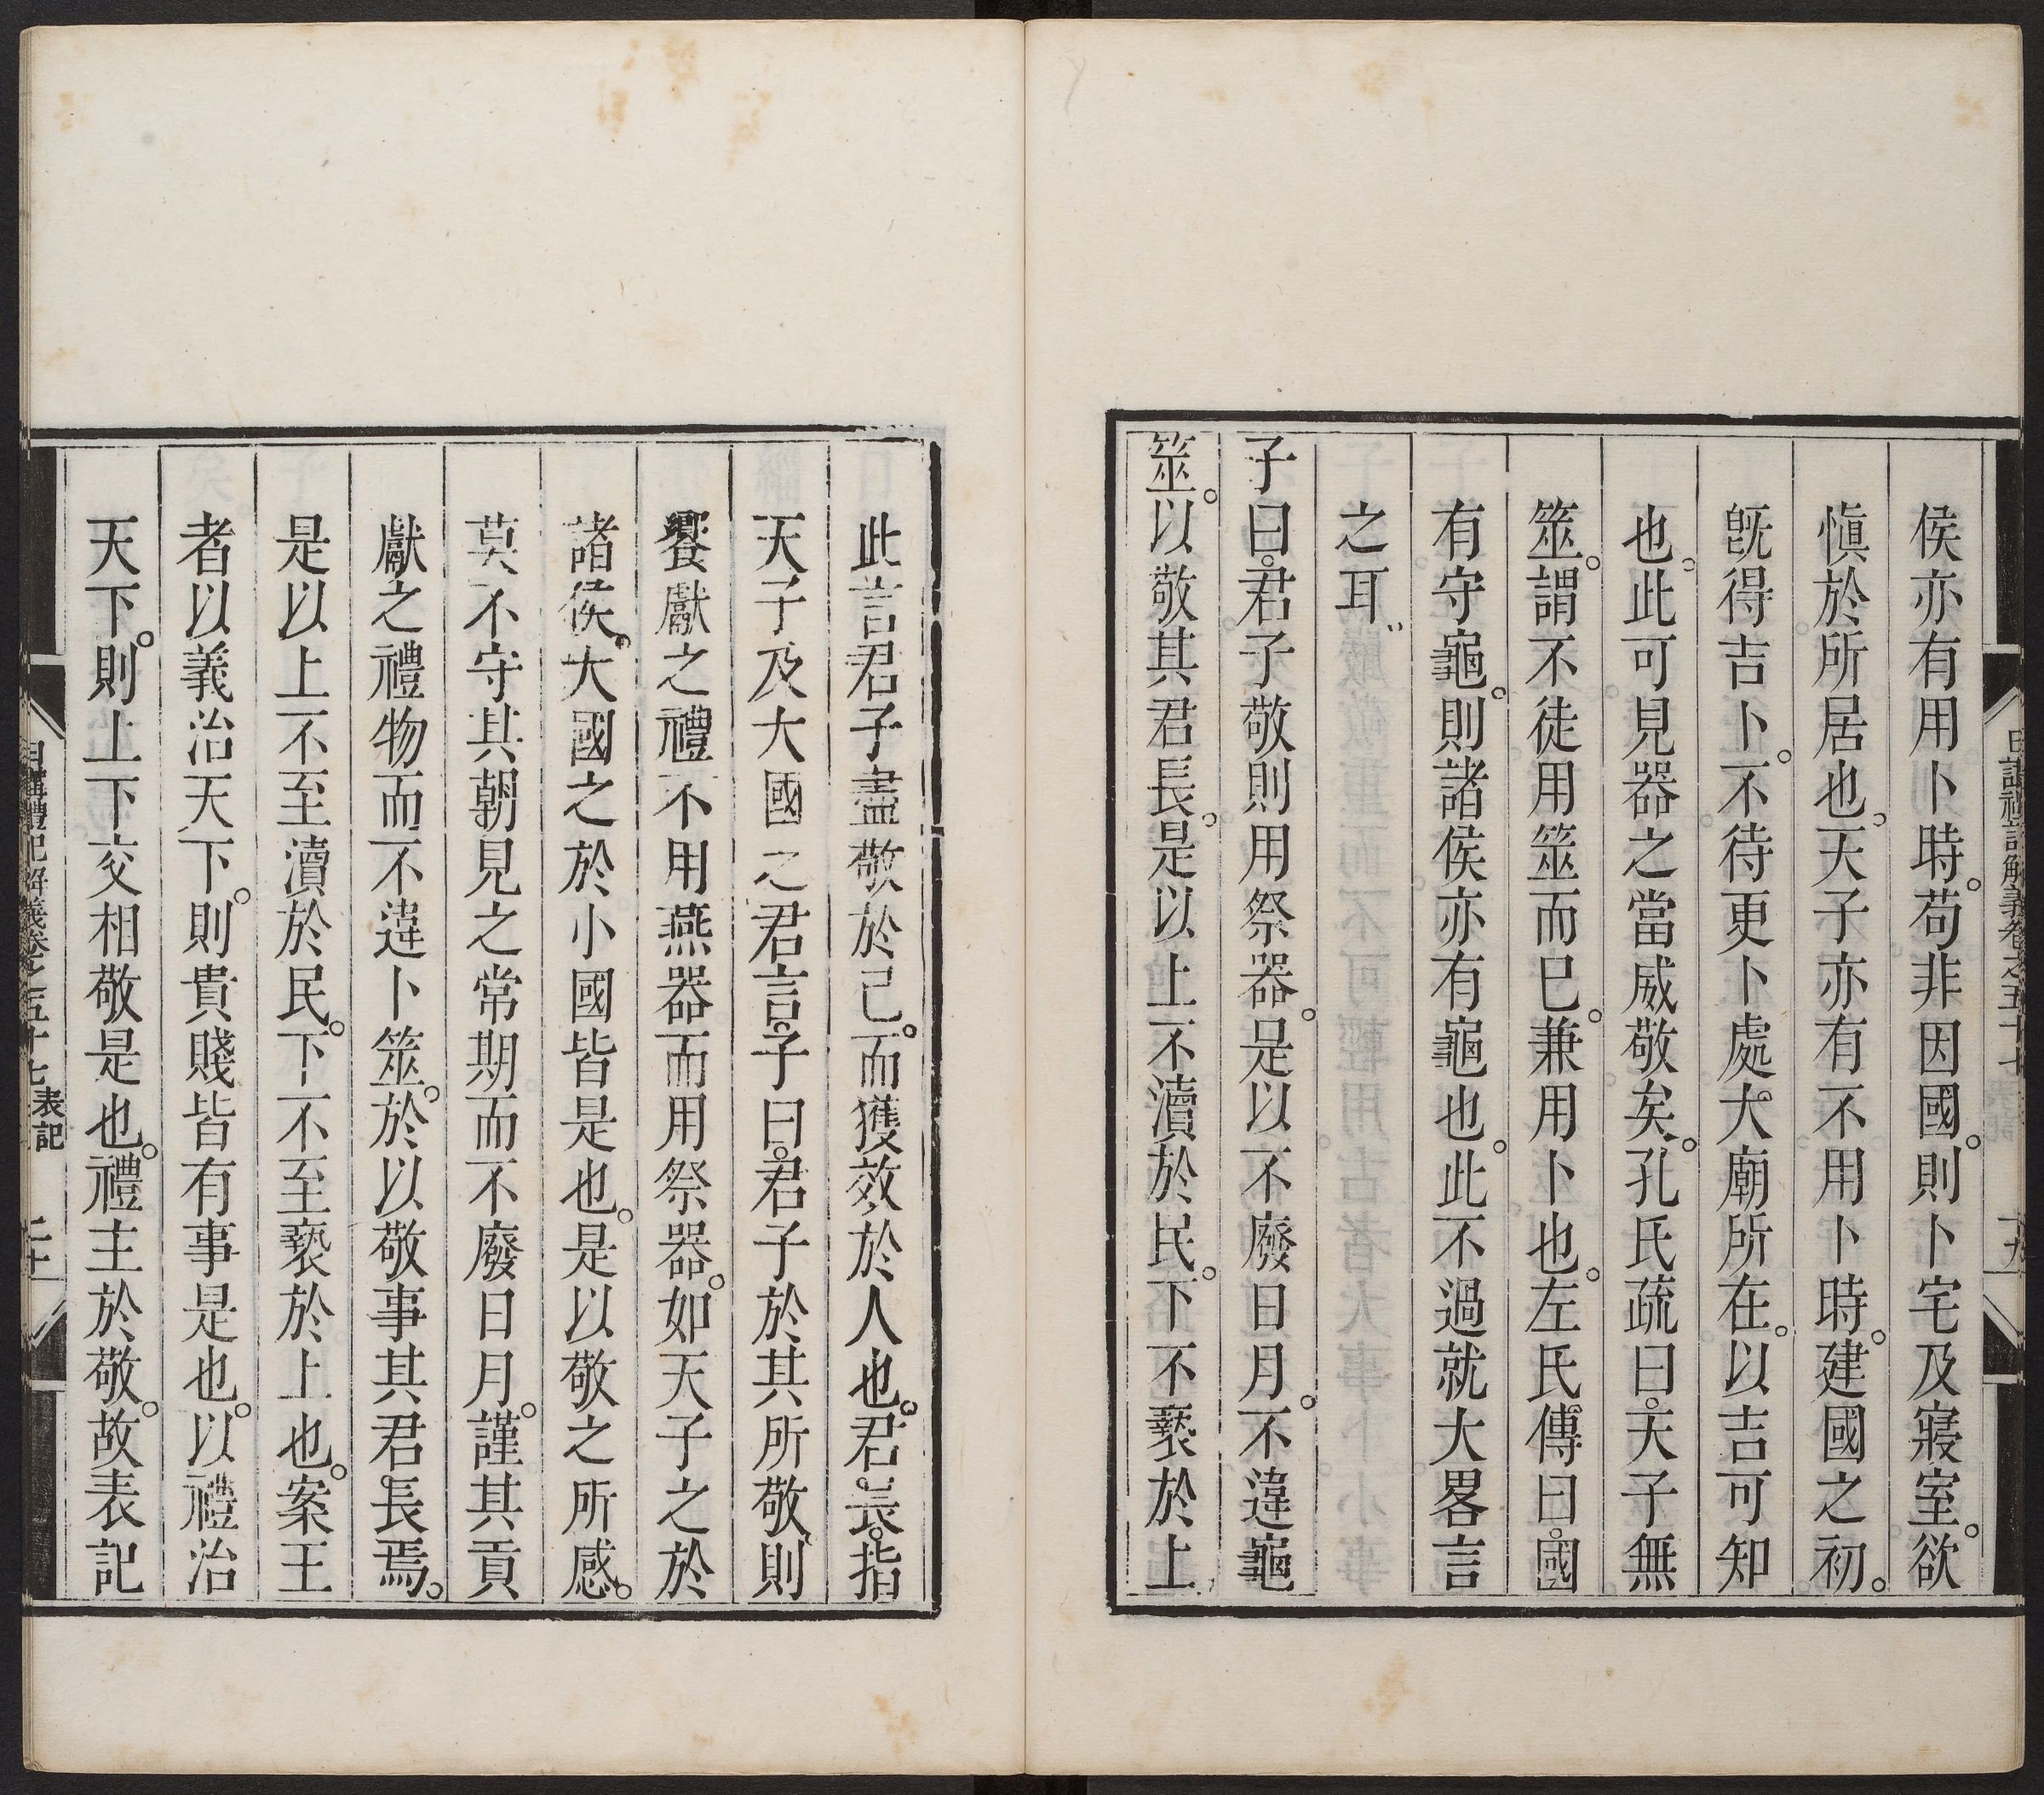 侯亦有用卜時。苟非因國。則卜宅及寢室。欲
慎於所居也。天子亦有不用卜時。建國之初。
旣得吉卜。不待更卜處大廟所在。以吉可知
也。此可見器之當威敬矣。孔氏疏曰。天子無
筮。謂不徒用筮而已。兼用卜也。左氏傳曰。國
有守龜。則諸侯亦有龜也。此不過就大畧言
之耳
子曰。君子敬則用祭器。是以不廢日月。不違龜
筮。以敬其君長。是以上不瀆於民。下不褻於上
日講禮記解義卷之五十七
十九
此言君子盡敬於己。而獲效於人也。君。長。指
天子及大國之君言。子曰。君子於其所敬。則
饗獻之禮不用燕器而用祭器。如天子之於
諸侯。大國之於小國皆是也。是以敬之所感。
莫不守其朝見之常期而不廢日月。謹其貢
獻之禮物而不違卜筮。於以敬事其君長焉。
是以上不至瀆於民。下不至褻於上也。案王
者以義治天下。則貴賤皆有事是也。以禮治
天下。則上下交相敬是也。禮主於敬。故表記
日講禮記解義卷之五十七 表記
二十